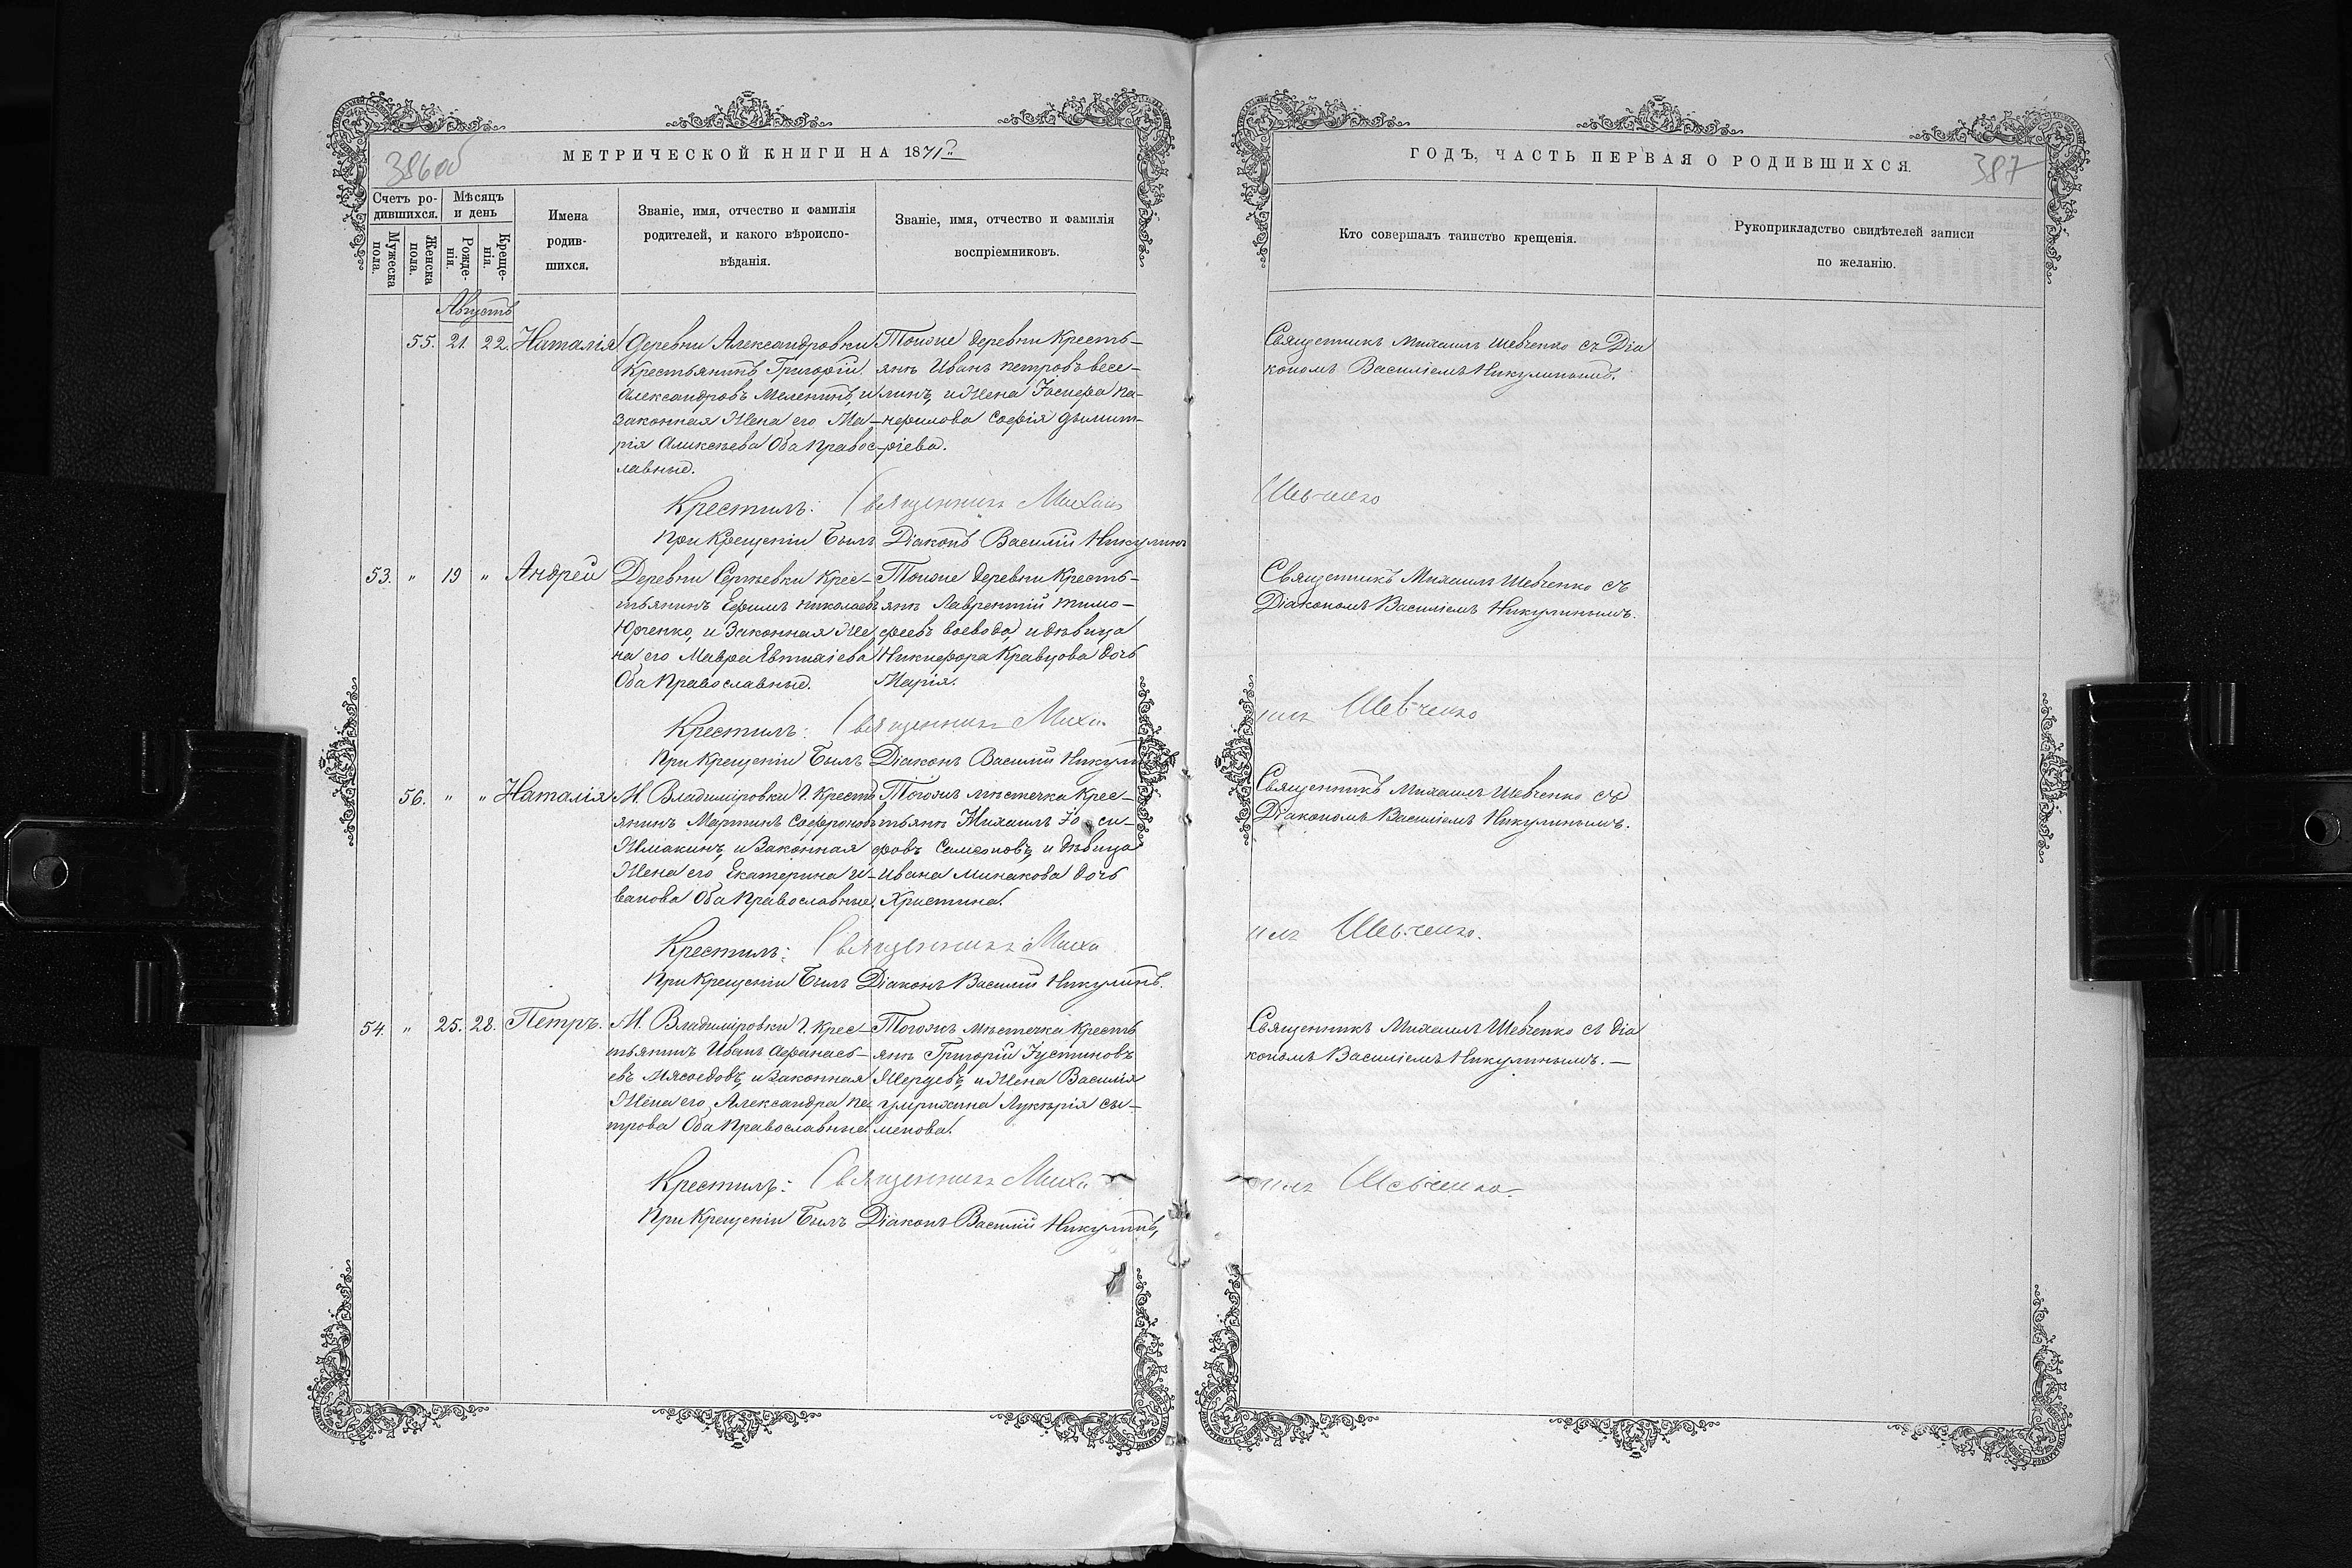 386об
МЕТРИЧЕСКОЙ КНИГИ НА 1871й
Счетъ родившихся.
Мужеска пола.
Женска пола.
Мѣсяцъ и день
Рожденія.
Крещенія.
Имена родившихся.
Званіе, имя, отчество и фамилія
родителей, и какого вѣроиспо-
вѣданія.
Званіе, имя, отчество и фамилія
воспріемниковъ.
Августъ
55. 21. 22. Наталія
Деревни Александровки
Крестьянинъ Григорій
Александровъ Меленинъ, и
законная Жена его Ма-
рія Аликсѣева Оба Правос-
лавные.
Тойже деревни Кресть-
янъ Иванъ петровъ весе-
линъ, и Жена Іосифа па-
нфилова Софія дымит-
ріева.
Крестилъ: Священникъ Михаилъ
При Крещеніи Былъ Діаконъ Василій Никулинъ
53. " 19 " Андрей
Деревни Сергѣевки Крес-
тьянинъ Ефимъ николаевъ
Юрченко, и Законная Же
на его Мавра Евтихіева
Оба Православные.
Тойже деревни Кресть-
янъ Лаврентій тимо-
феевъ воевода, и дѣвица
Никифора Кравцова дочь
Марія.
Крестилъ: Священникъ Миха
При Крещеніи Былъ Діаконъ Василій Никулинъ
56. " " Наталія
М. Владиміровки Г. Кресть
янинъ Мартинъ Софроновъ
и Законная
Жена его Екатерина И-
ванова Оба Православные.
Тогожъ мѣстечка Крес-
тьянъ Михаилъ Іоси-
фовъ Самсоновъ, и дѣвица
Ивана минакова дочь
Христина.
Крестилъ: Священникъ Миха
При Крещеніи Былъ Діаконъ Василій Никулинъ.
54. " 25. 28. Петръ.
М. Владиміровки Г. Крес-
тьянинъ Иванъ Афанась-
евъ Мясоедовъ, и Законная
Жена его, Александра Пе-
трова Оба Православные.
Тогожъ мѣстечка Кресть
янъ Григорій Густиновъ
и Жена Василія
Лукерія сы-
менова.
Крестилъ: Священникъ Миха
При Крещеніи Былъ Діаконъ Василій Никулинъ,
ГОДЪ, ЧАСТЬ ПЕРВАЯ О РОДИВШИХСЯ.
387
Кто совершалъ таинство крещенія.
Рукоприкладство свидѣтелей записи
по желанію.
Священникъ Михаилъ Шевченко съ Діа
кономъ Василіемъ Никулинымъ.
Шевченко
Священникъ Михаилъ Шевченко съ
Діакономъ Василіемъ Никулинымъ.
илъ Шевченко
Священникъ Михаилъ Шевченко съ
Діакономъ Василіемъ Никулинымъ.
илъ Шевченко.
Священникъ Михаилъ Шевченко съ діа
кономъ Василіемъ Никулинымъ. —
илъ Шевченко.